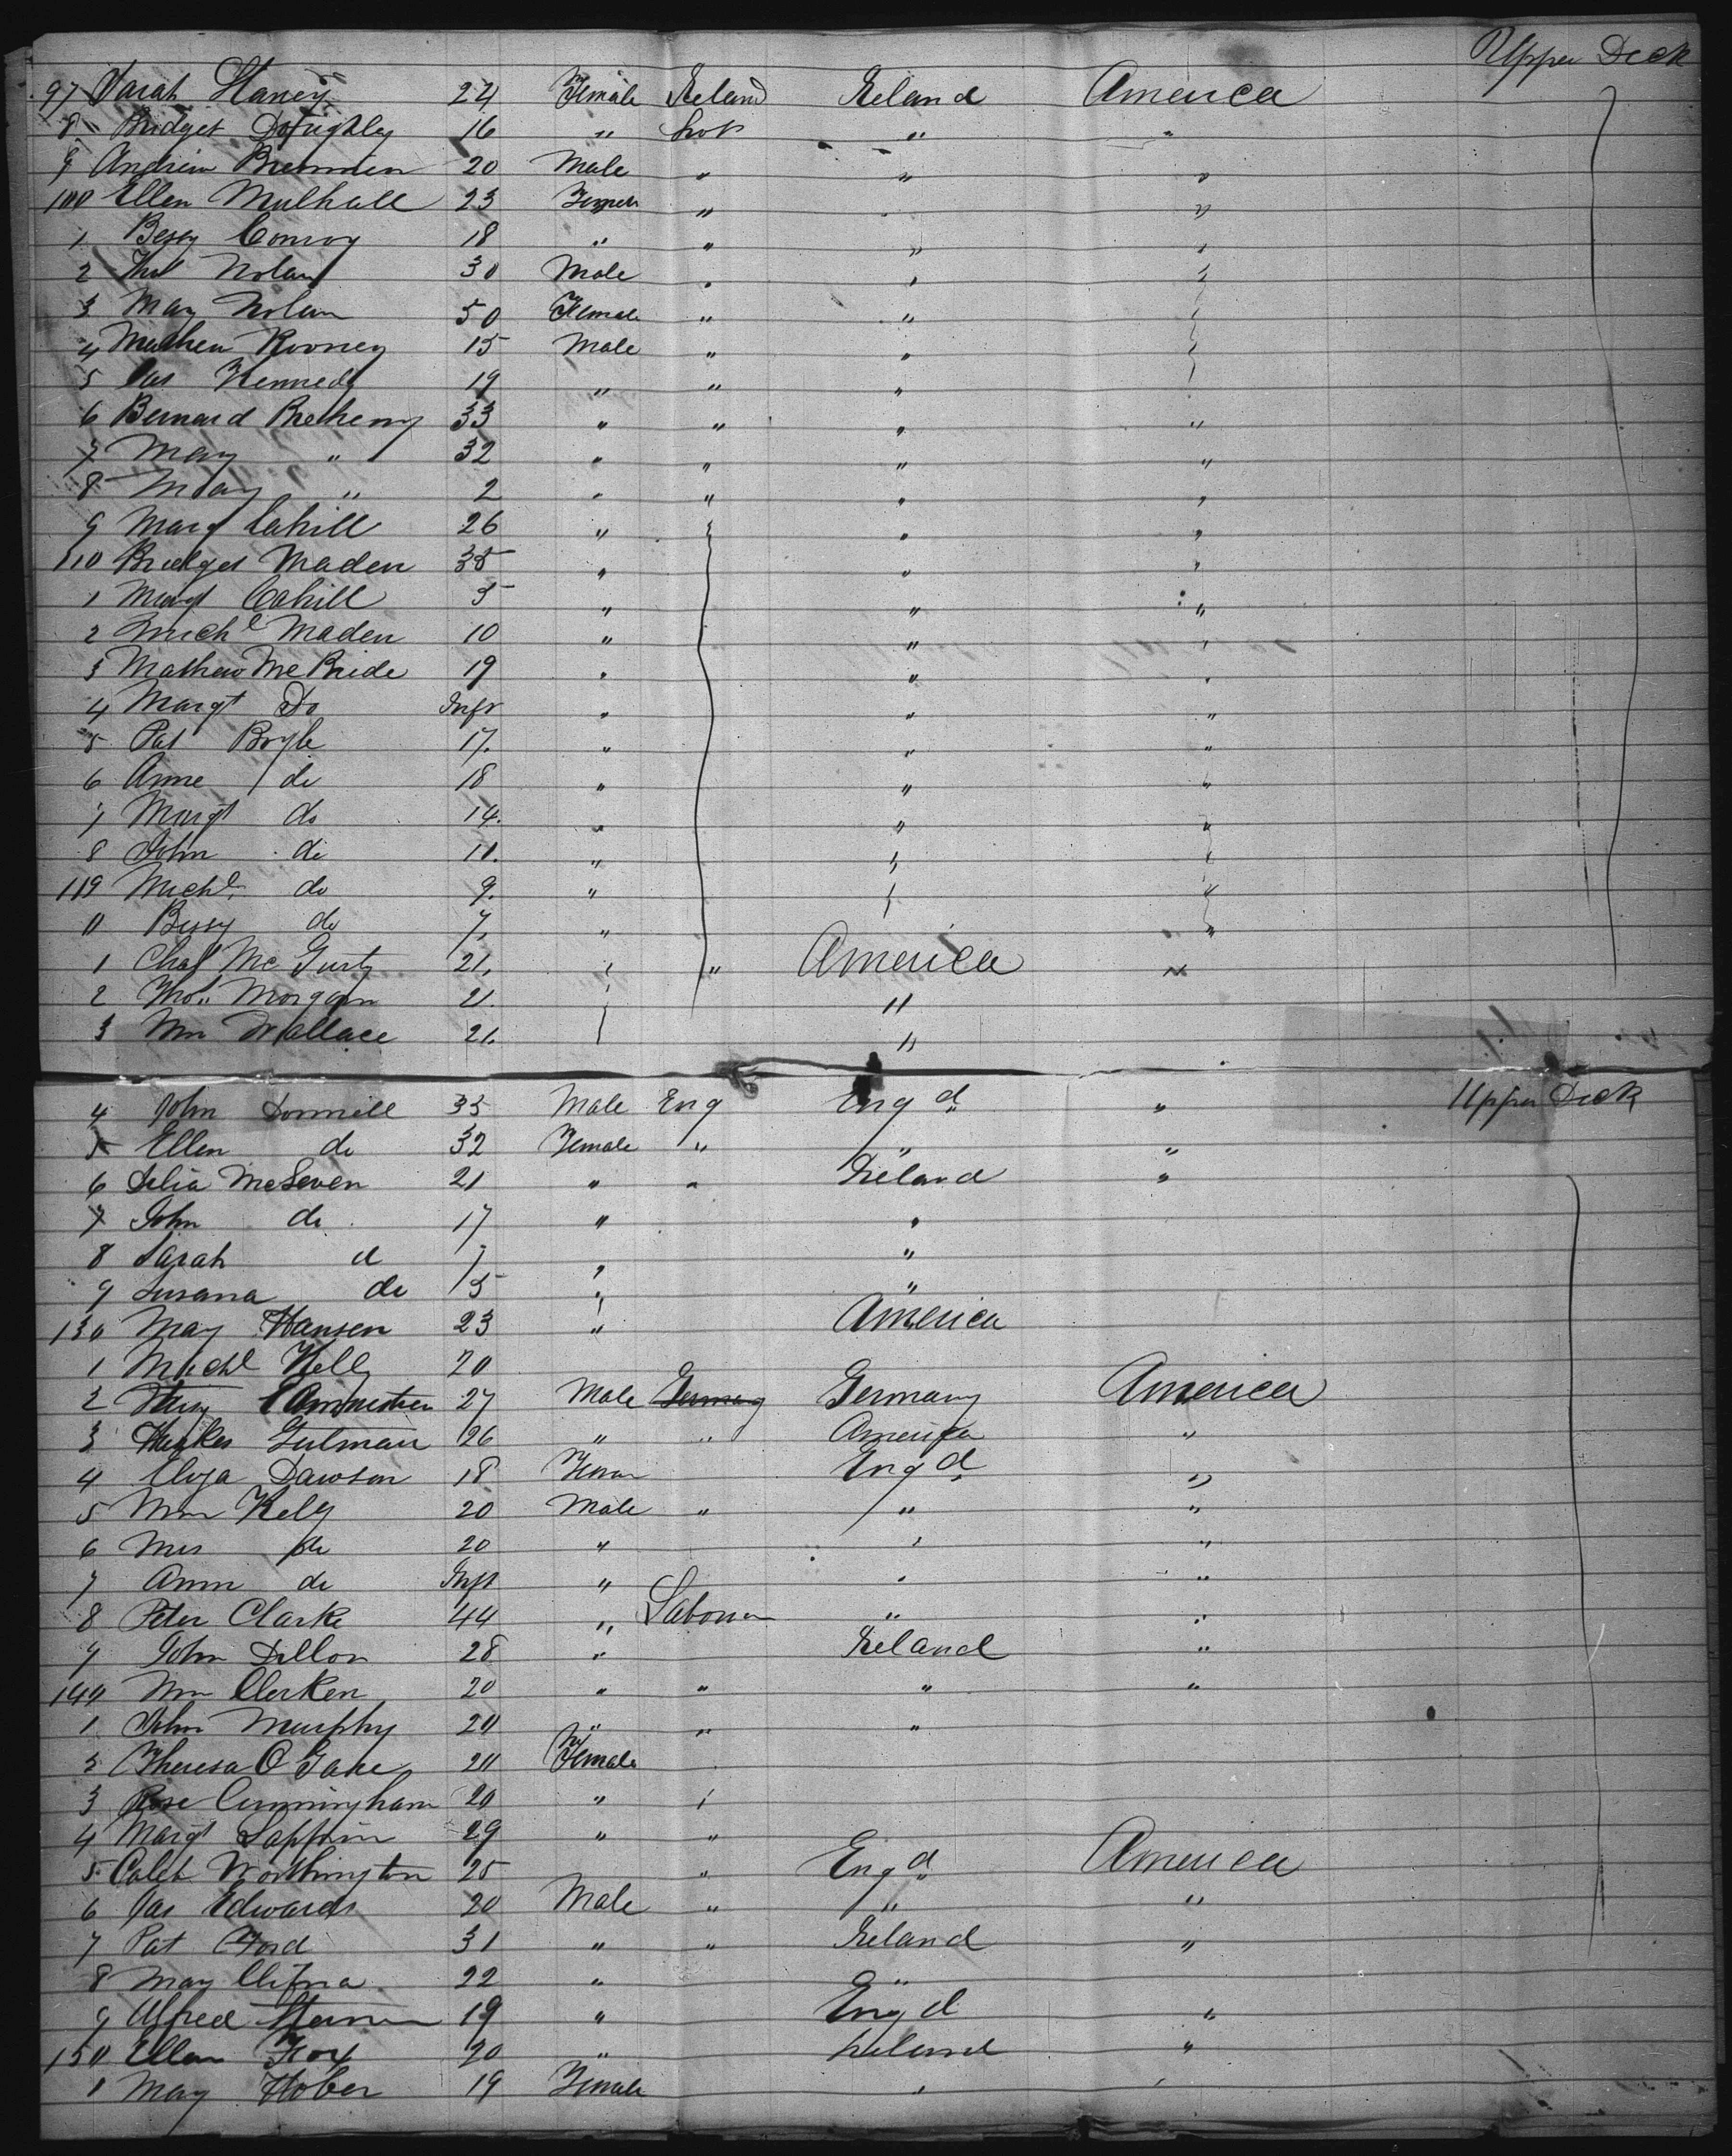 Upper Deck
97 Sarah Haney 24 Female Ireland Ireland America
8 Bridget 16 " " "
9 Andrew Brennien 20 Male " " "
100 Ellen Mulhall 23 " "
1 Bessy Conroy 18 " " " "
2 Nolan 30 Male " " "
3 Mary Nolan 50 Female " " "
4 Mathew Rooney 15 Male " " "
5 Jas Kennedy 19 " " "
6 Bernard 33 " " " "
7 Mary " 32 " " " "
8 Mary " 2 " " " "
9 Mary Cahill 26 " " "
110 Bridget Maden 35 " " "
1 Margt Cahill 5 " " "
2 Michl Maden 10 " " "
3 Mathew McBride 19 " " "
4 Margt Do Inft " " "
5 Pat Boyle 17. " " "
6 Anne do 18 " " "
7 Margt do 14. " " "
8 John do 11. "
119 Michl do 9. "
0 Bessy do 7. " "
1 Chas McGurty 21. " America "
2 Thos. Morgan 21. "
3 Wm Wallace 21. "
Upper Deck
4 John Donnell 35 Male Eng Engd "
5 Ellen do 32 Female " " "
6 Delia McSeven 21 " " Ireland "
7 John do 17 " "
8 Sarah d 7 " "
9 Susana do 15 " "
130 Mary Hansen 23 " America
1 Michl Kelly 20
2 27 Male Germany Germany America
3 Gutman 26 " " America "
4 Eliza Dawson 18 Engd "
5 Wm Kelly 20 Male " " "
6 Mrs do 20 " " "
7 Ann do Inft " " "
8 Peter Clarke 44 " Labourer " "
9 John Dillon 28 " Ireland "
140 Wm Clerken 20 " " " "
1 John Murphy 20 " " "
2 Theresa O Gane 20 Female
3 Rose Cunningham 20 "
4 Margt 29 " "
5 Caleb Worthington 25 " Engd America
6 Jas Edwards 20 Male " " "
7 Pat Ford 31 " " Ireland "
8 May 22 " "
9 Alfred 19 " Engd "
150 Ellen Fox 20 " Ireland "
1 May Hober 19 Female " "